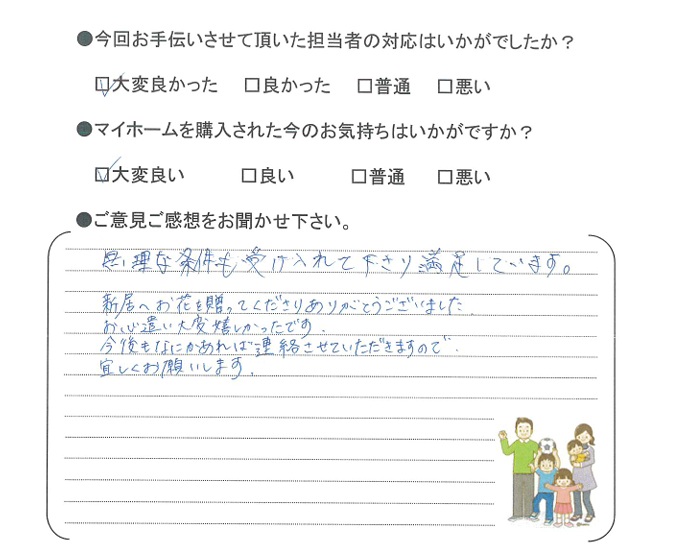 ●今回お手伝いさせて頂いた担当者の対応はいかがでしたか？
☑大変良かった □良かった □普通 □悪い
●マイホームを購入された今のお気持ちはいかがですか？
☑大変良い □良い □普通 □悪い
●ご意見ご感想をお聞かせ下さい。
無理な条件も受け入れて下さり満足しています。
新居へお花を贈ってくださりありがとうございました.
お心遣い大変嬉しかったです.
今後もなにかあれば連絡させていただきますので.
宜しくお願いします.